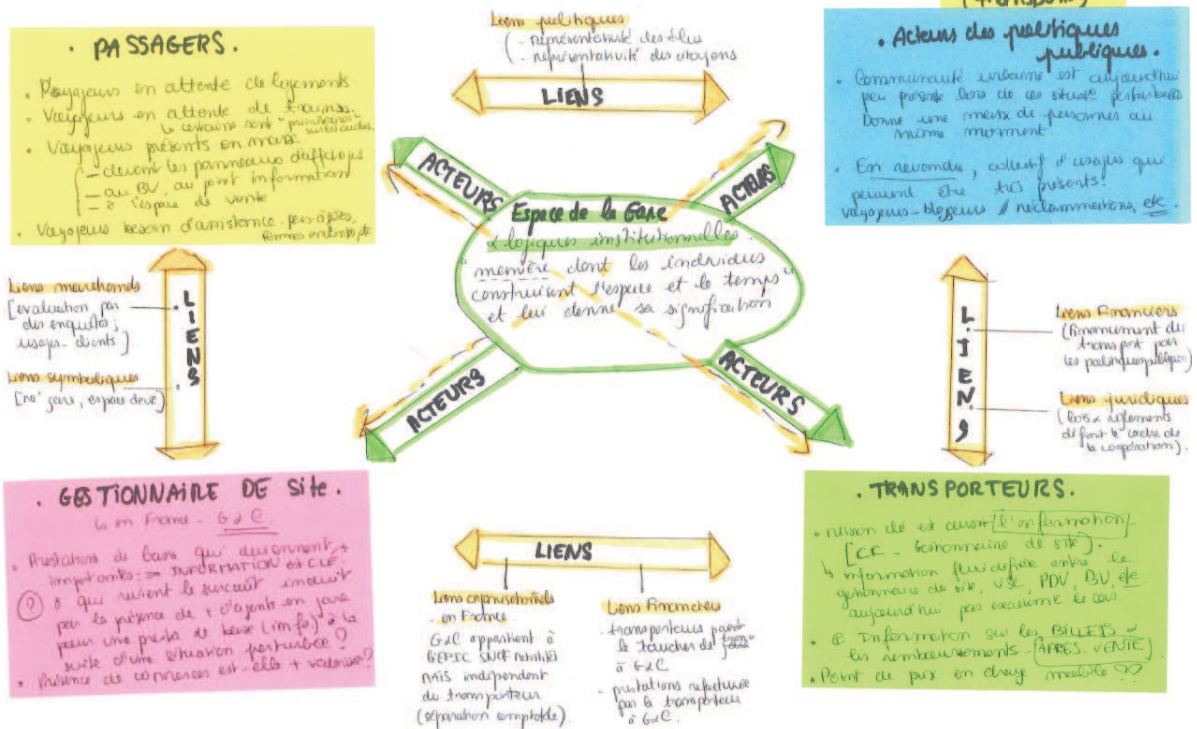 (transports)
. PASSAGERS.
. Voyageurs en attente de logements.
. Voyageurs en attente de trains.
↳ certains sont "prioritaires"
. Voyageurs présents en masse
— devant les panneaux d'affichages
— au BV, au point information
— à l'espace de vente
. Voyageurs besoin d'assistance - pers âgées,
femmes enceintes, etc
Liens politiques
(- représentativité des élus
- représentativité des citoyens
LIENS
. Acteurs des politiques
publiques.
. Communauté urbaine est aujourd'hui
peu présente lors de ces situat° perturbées
Donne une masse de personnes au
même moment.
. En revanche, collectif d'usagers qui
peuvent être très présents!
voyageurs-bloggeurs // réclammations, etc.
ACTEURS
ACTEURS
Espace de la Gare
& logiques institutionnelles.
"manière dont les individus
construisent l'espace et le temps"
et lui donne sa signification
ACTEURS
ACTEURS
Liens marchands
[évaluation par
des enquêtes;
usagers-clients]
Liens symboliques
LIENS
LIENS
Liens Financiers
(financement du
transport par
les politiques publiques)
Liens juridiques
(lois & règlements
définit le cadre de
la coopération).
. GESTIONNAIRE DE Site.
↳ en France - G&C
. Prestations de base qui deviennent +
importantes => INFORMATION est CLÉ.
? à qui revient le surcoût induit
par la présence de + d'agents en gare
pour une presta de base (info) à la
suite d'une situation perturbée?
. Présence de commerces est-elle + valorisée?
LIENS
Liens organisationnels
- en France
G&C appartient à
l'EPIC SNCF mobilités
mais indépendant
du transporteur
(séparation comptable).
Liens Financiers
- transporteurs paient
le toucher de
à G&C
- prestations refacturées
par le transporteur
à G&C.
. TRANSPORTEURS.
. mission clé est l'information
[CF - Gestionnaire de site).
↳ information fluidifiée entre le
gestionnaire de site, VSL, PDV, BV, etc
aujourd'hui pas le cas.
. ⊕ Information sur les BILLETS &
les remboursements - (APRES-VENTE)
. Point de prix en charge mobile ??